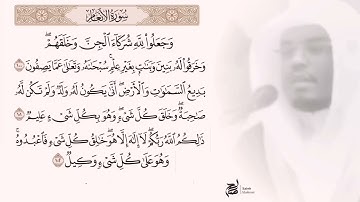 سُورَةُ الأَنْعَام
وَجَعَلُوا۟ لِلَّهِ شُرَكَآءَ ٱلْجِنَّ وَخَلَقَهُمْ ۖ
وَخَرَقُوا۟ لَهُۥ بَنِينَ وَبَنَٰتٍۭ بِغَيْرِ عِلْمٍ ۚ سُبْحَٰنَهُۥ وَتَعَٰلَىٰ عَمَّا يَصِفُونَ ١٠٠
بَدِيعُ ٱلسَّمَٰوَٰتِ وَٱلْأَرْضِ ۖ أَنَّىٰ يَكُونُ لَهُۥ وَلَدٌ وَلَمْ تَكُن لَّهُۥ
صَٰحِبَةٌ ۖ وَخَلَقَ كُلَّ شَىْءٍ ۖ وَهُوَ بِكُلِّ شَىْءٍ عَلِيمٌ ١٠١
ذَٰلِكُمُ ٱللَّهُ رَبُّكُمْ ۖ لَآ إِلَٰهَ إِلَّا هُوَ ۖ خَٰلِقُ كُلِّ شَىْءٍ فَٱعْبُدُوهُ ۚ
وَهُوَ عَلَىٰ كُلِّ شَىْءٍ وَكِيلٌ ١٠٢